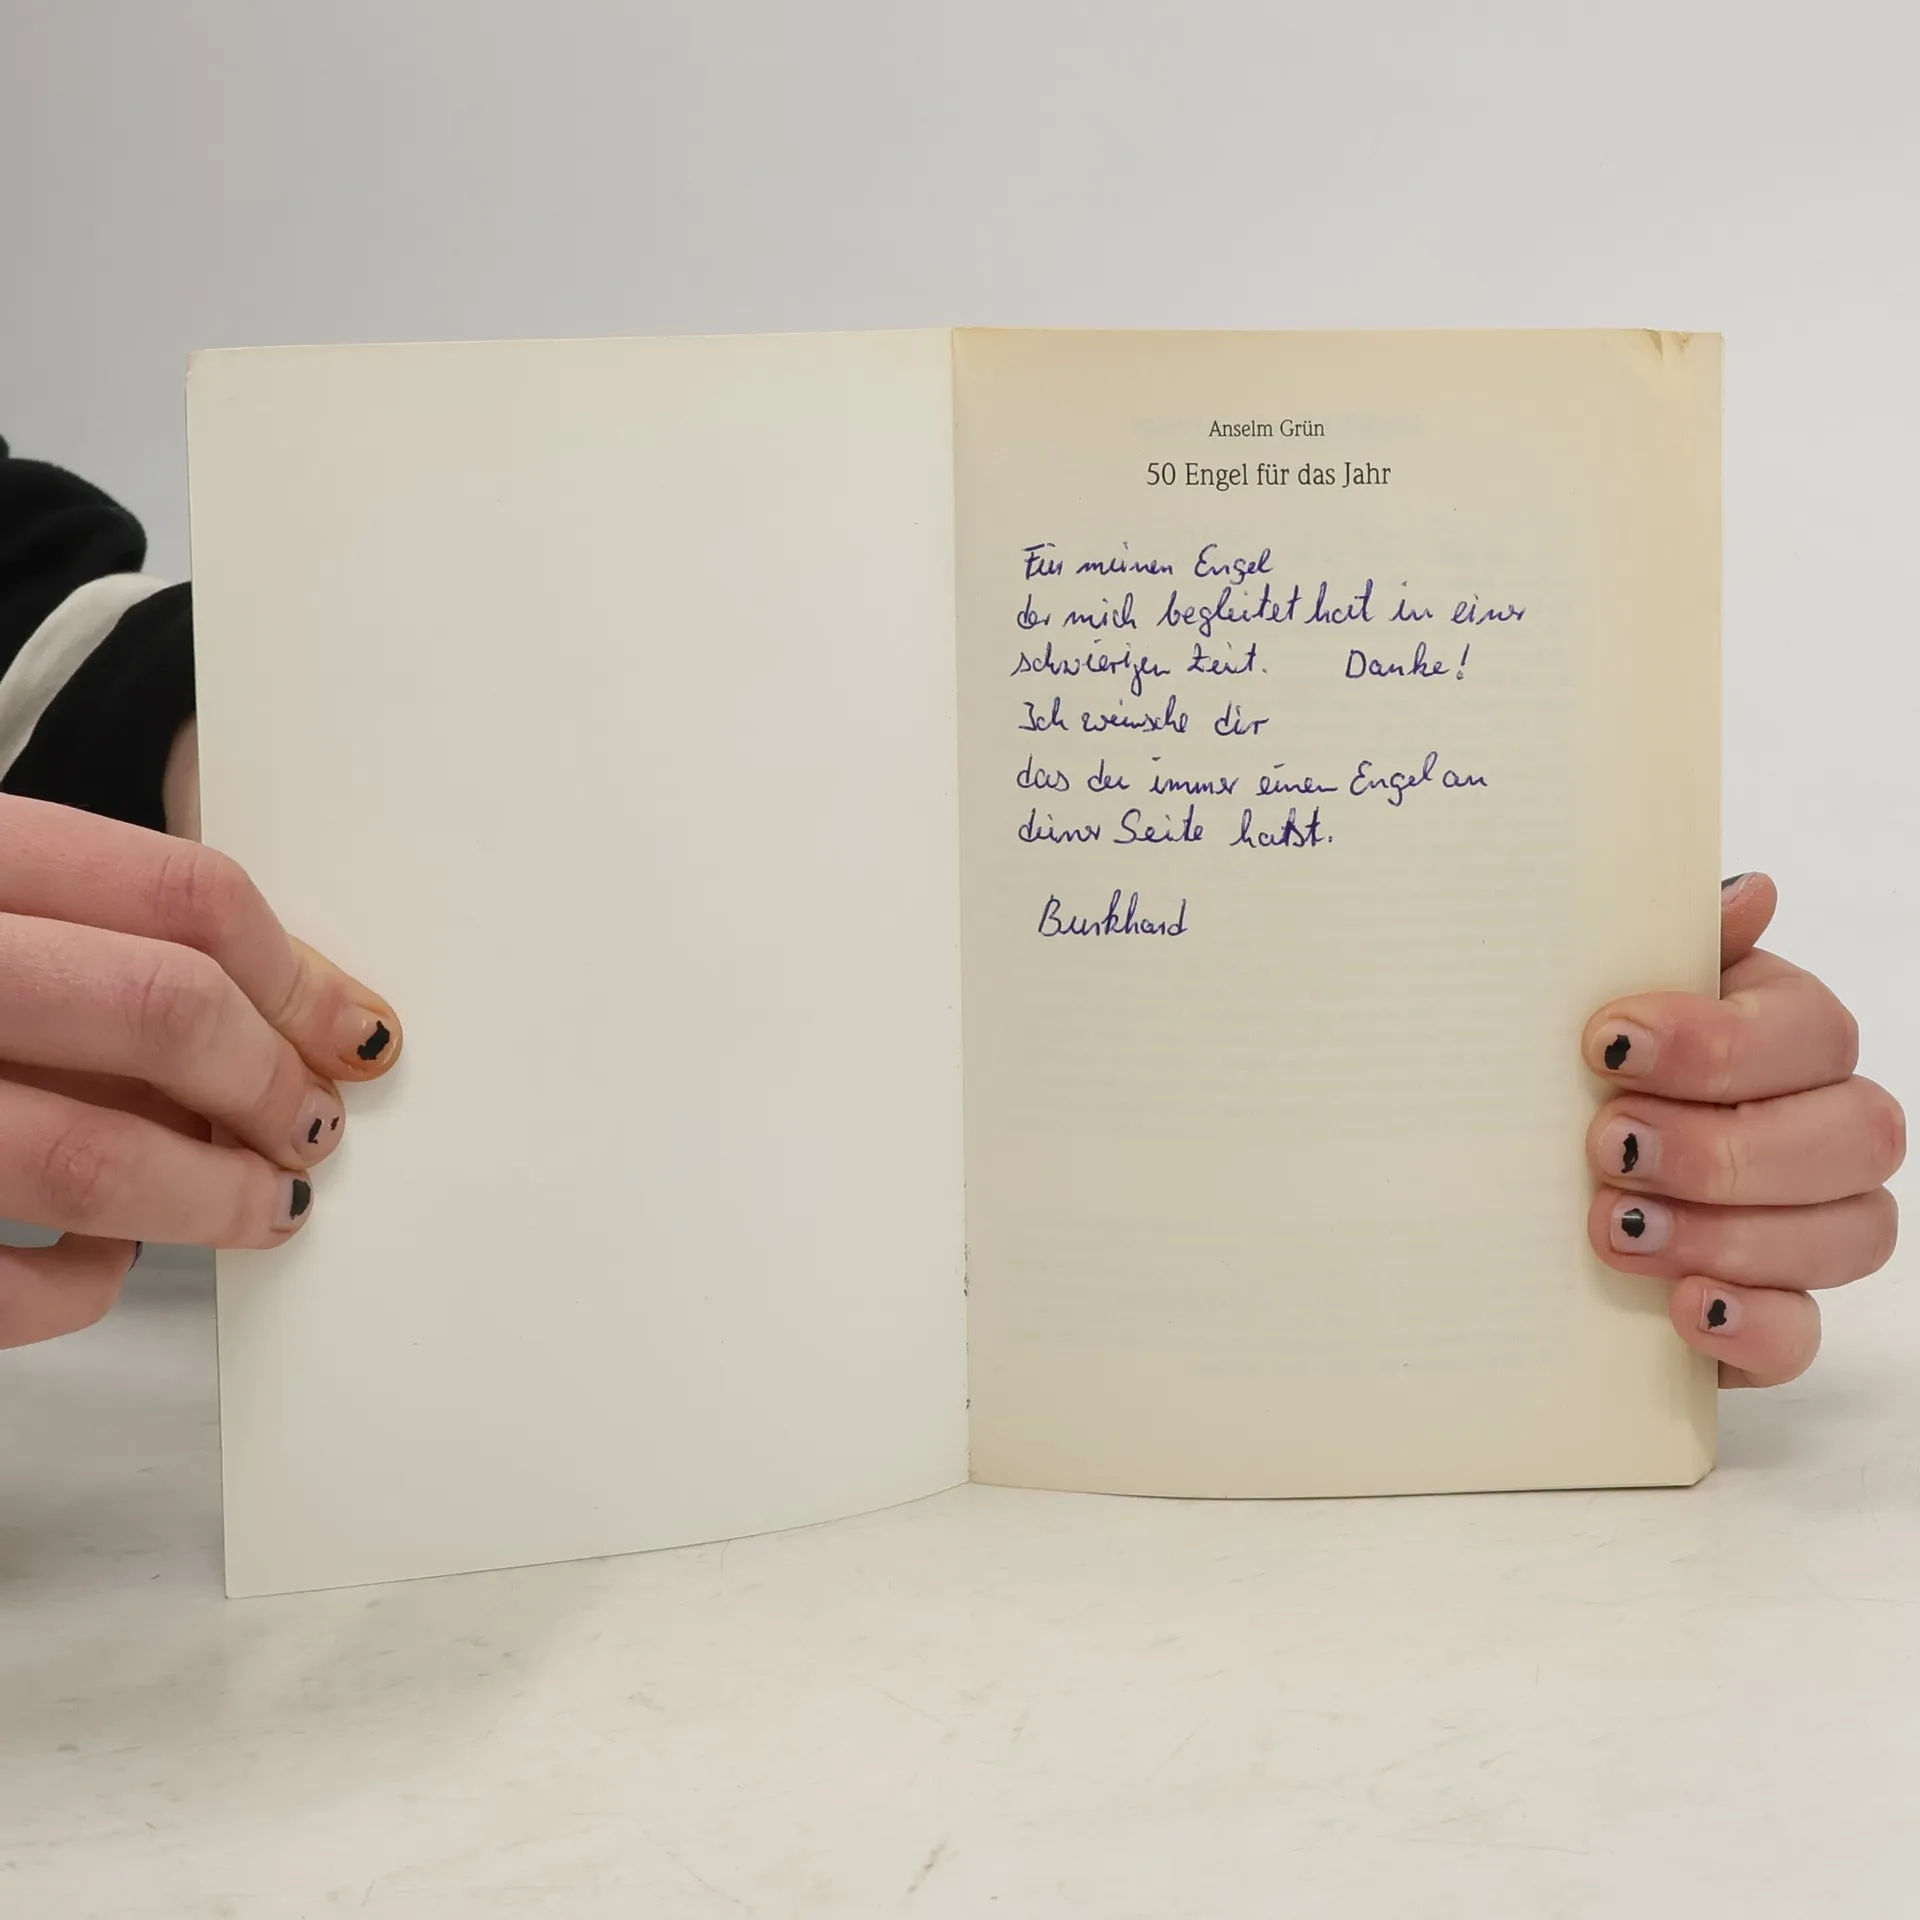 Anselm Grün
50 Engel für das Jahr
Für meinen Engel
der mich begleitet hat in einer
schwierigen Zeit. Danke!
Ich wünsche dir
das du immer einen Engel an
deiner Seite hast.
Burkhard